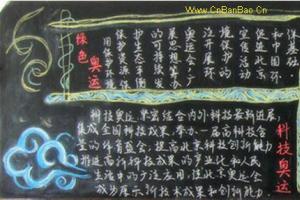 www.CnBanBao.Cn
绿色奥运
用保护环境
保护资源保
护生态平衡
的可持续发
展思想筹办
奥运会。广
泛开展环
宣传活动
促进北京
和中国环
科技奥运
科技奥运 紧密结合国内外科技最新进展,
集成全国科技成果,举办一届高科技含
量的体育盛会;提高北京科技创新能力,
推进高新科技成果的产业化和人民
生活中的广泛应用,使北京奥运会
成为展示新技术成果和创新能力